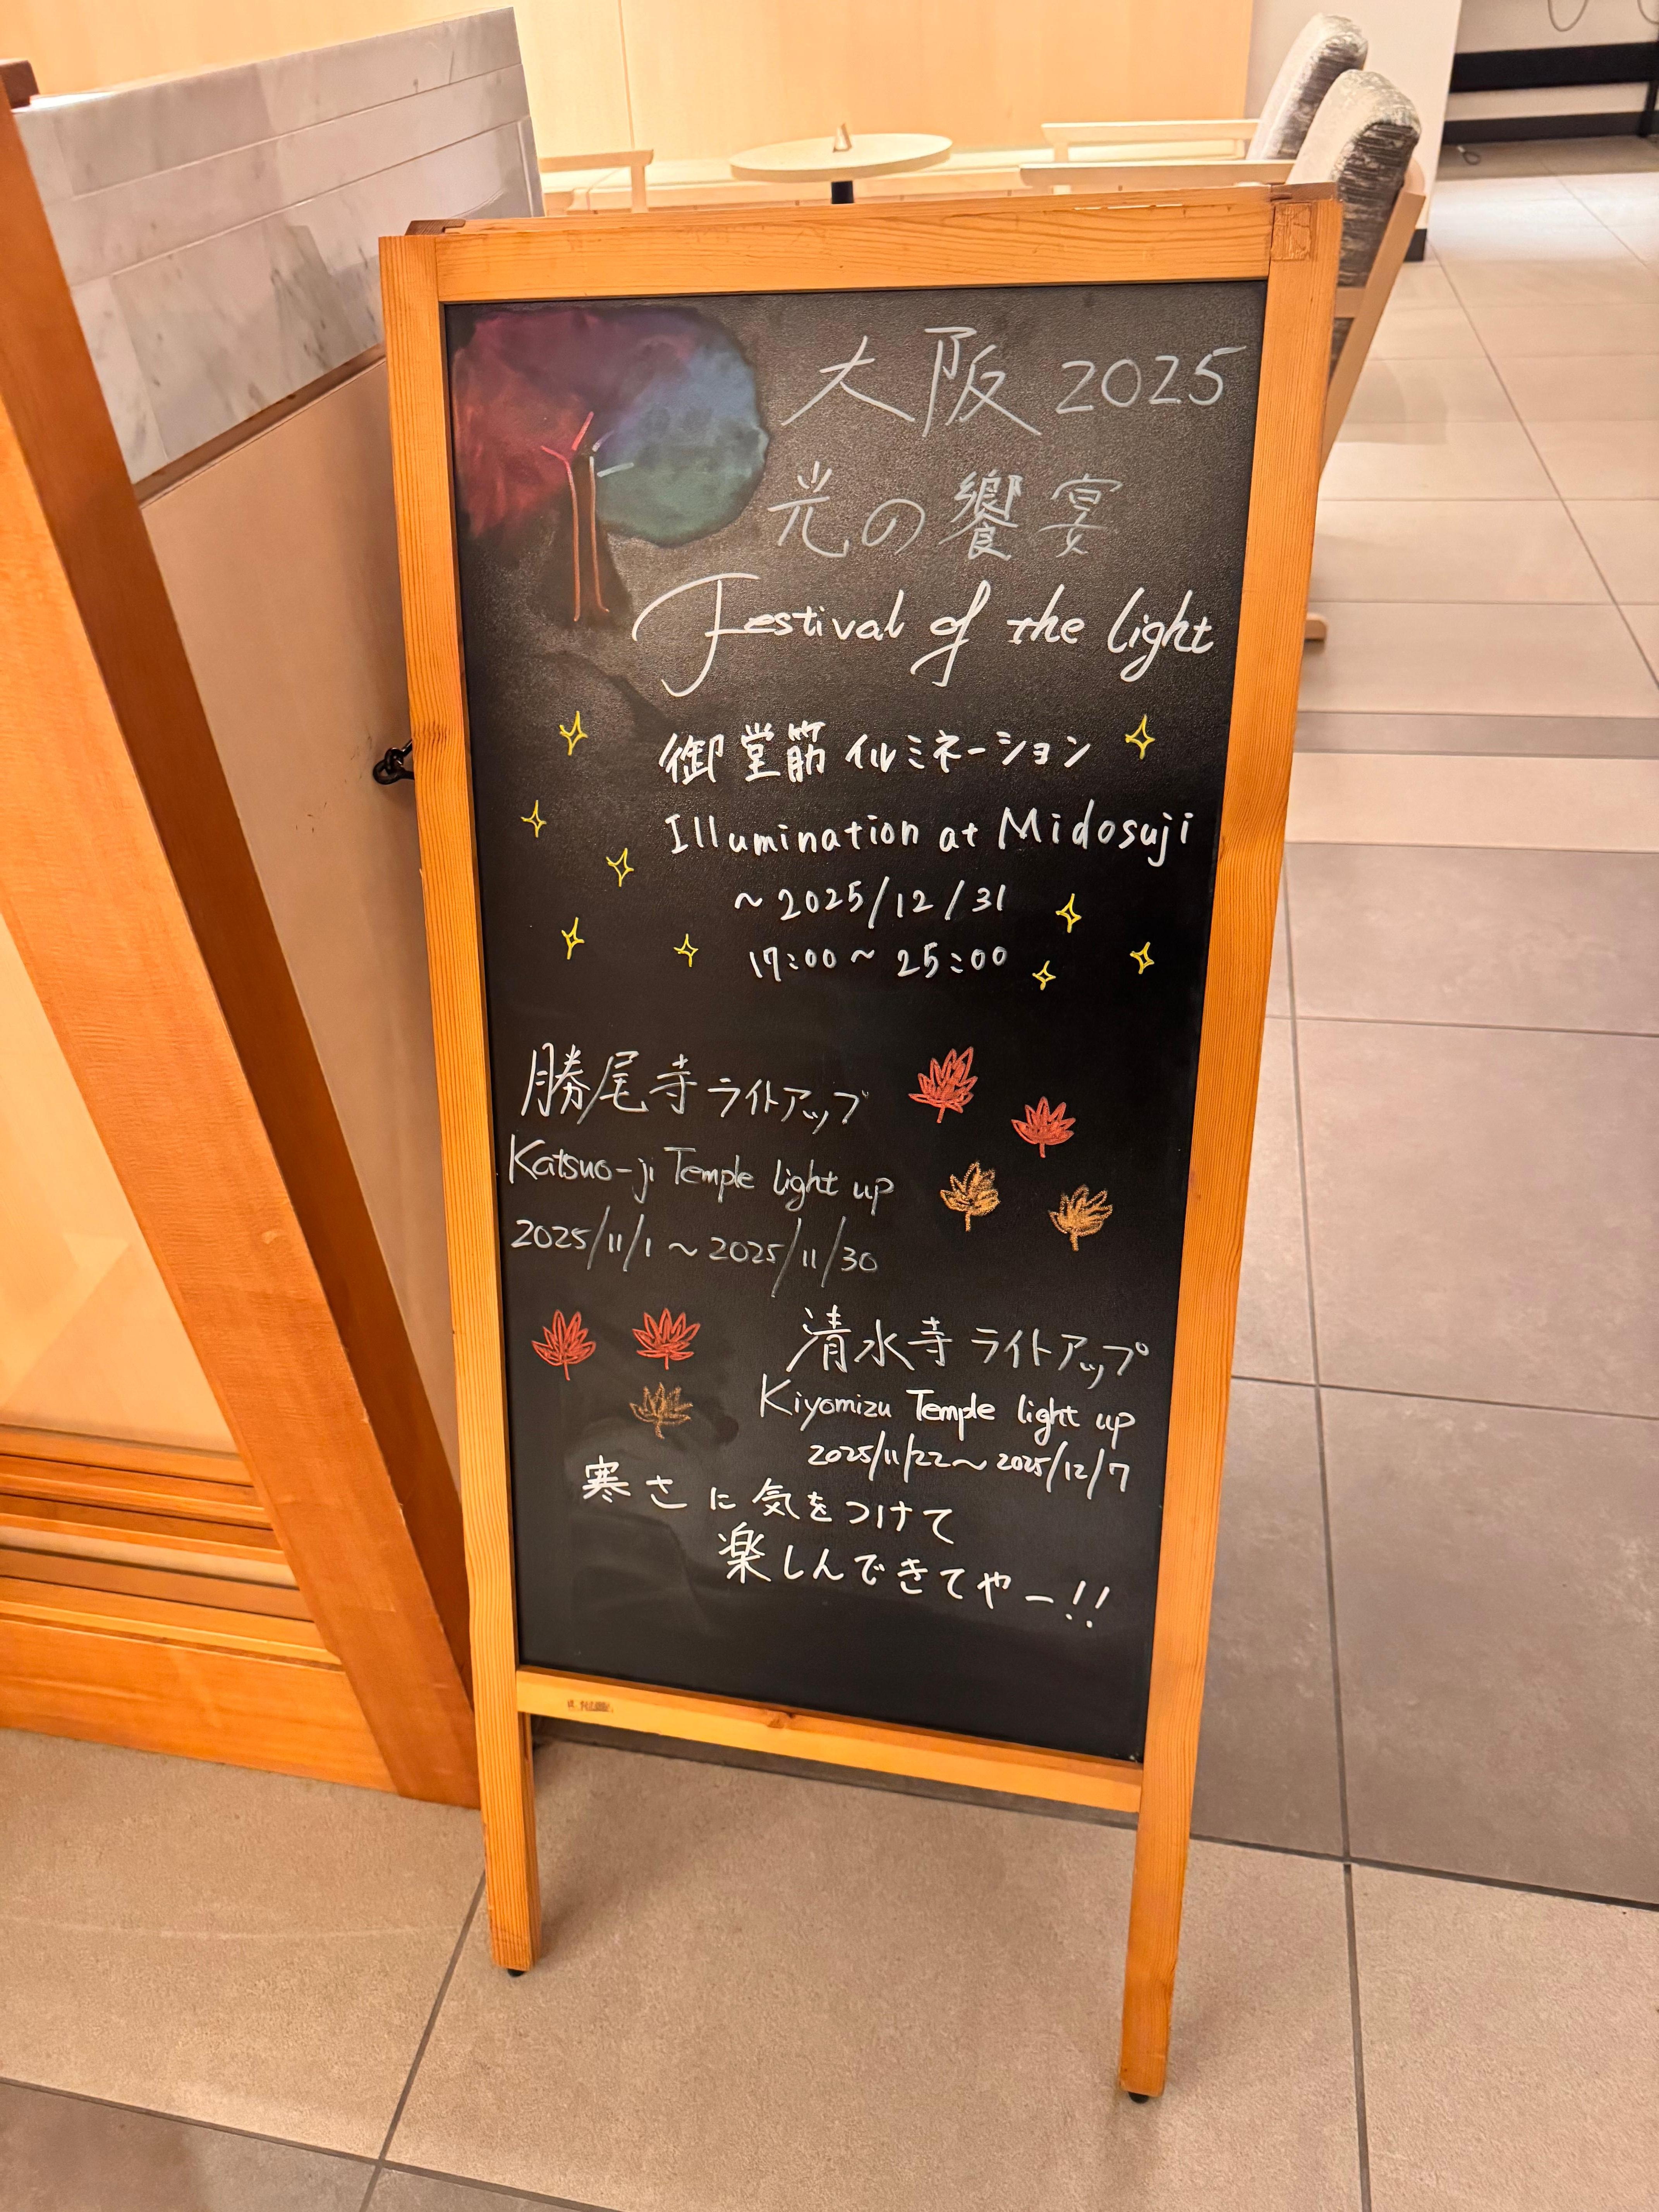 大阪 2025
光の饗宴
Festival of the light
御堂筋 イルミネーション
Illumination at Midosuji
～2025/12/31
17:00～25:00
勝尾寺 ライトアップ
Katsuo-ji Temple light up
2025/11/1～2025/11/30
清水寺 ライトアップ
Kiyomizu Temple light up
2025/11/22～2025/12/7
寒さに気をつけて
楽しんできてやー!!